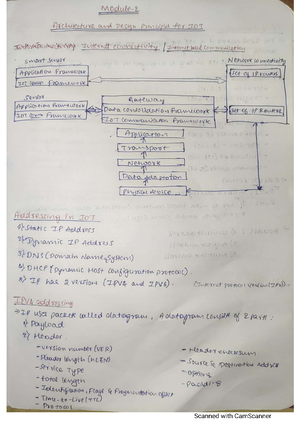 Module-2
Architecture and Design Principle for IOT
Internet connectivity / Internet based communication
Smart Sensor
Network Connectivity
Application Framework
Set of IP Routers
IOT Comm Framework
Sensor
Gateway
Application Framework
Data Consolidation Framework
Set of IP Routers
IOT Comm Framework
IOT Communication Framework
Application
Transport
Network
Data adaption
Physical device
Addressing in IOT
1) Static IP Address
2) Dynamic IP Address
3) DNS (Domain Name System)
4) DHCP (Dynamic Host Configuration protocol)
5) IP has 2 version (IPV4 and IPV6).
IPV4 addressing
IP use packet called datagram, A datagram consist of 2 part:
1) Payload
2) Header
- Version number (VER)
- Header checksum
- Header length (HLEN)
- Source & Destination Address
- Service Type
- options
- total length
- Identification, Flags & Fragmentation offset
- Time-to-Live (TTL)
- Protocol
Scanned with CamScanner